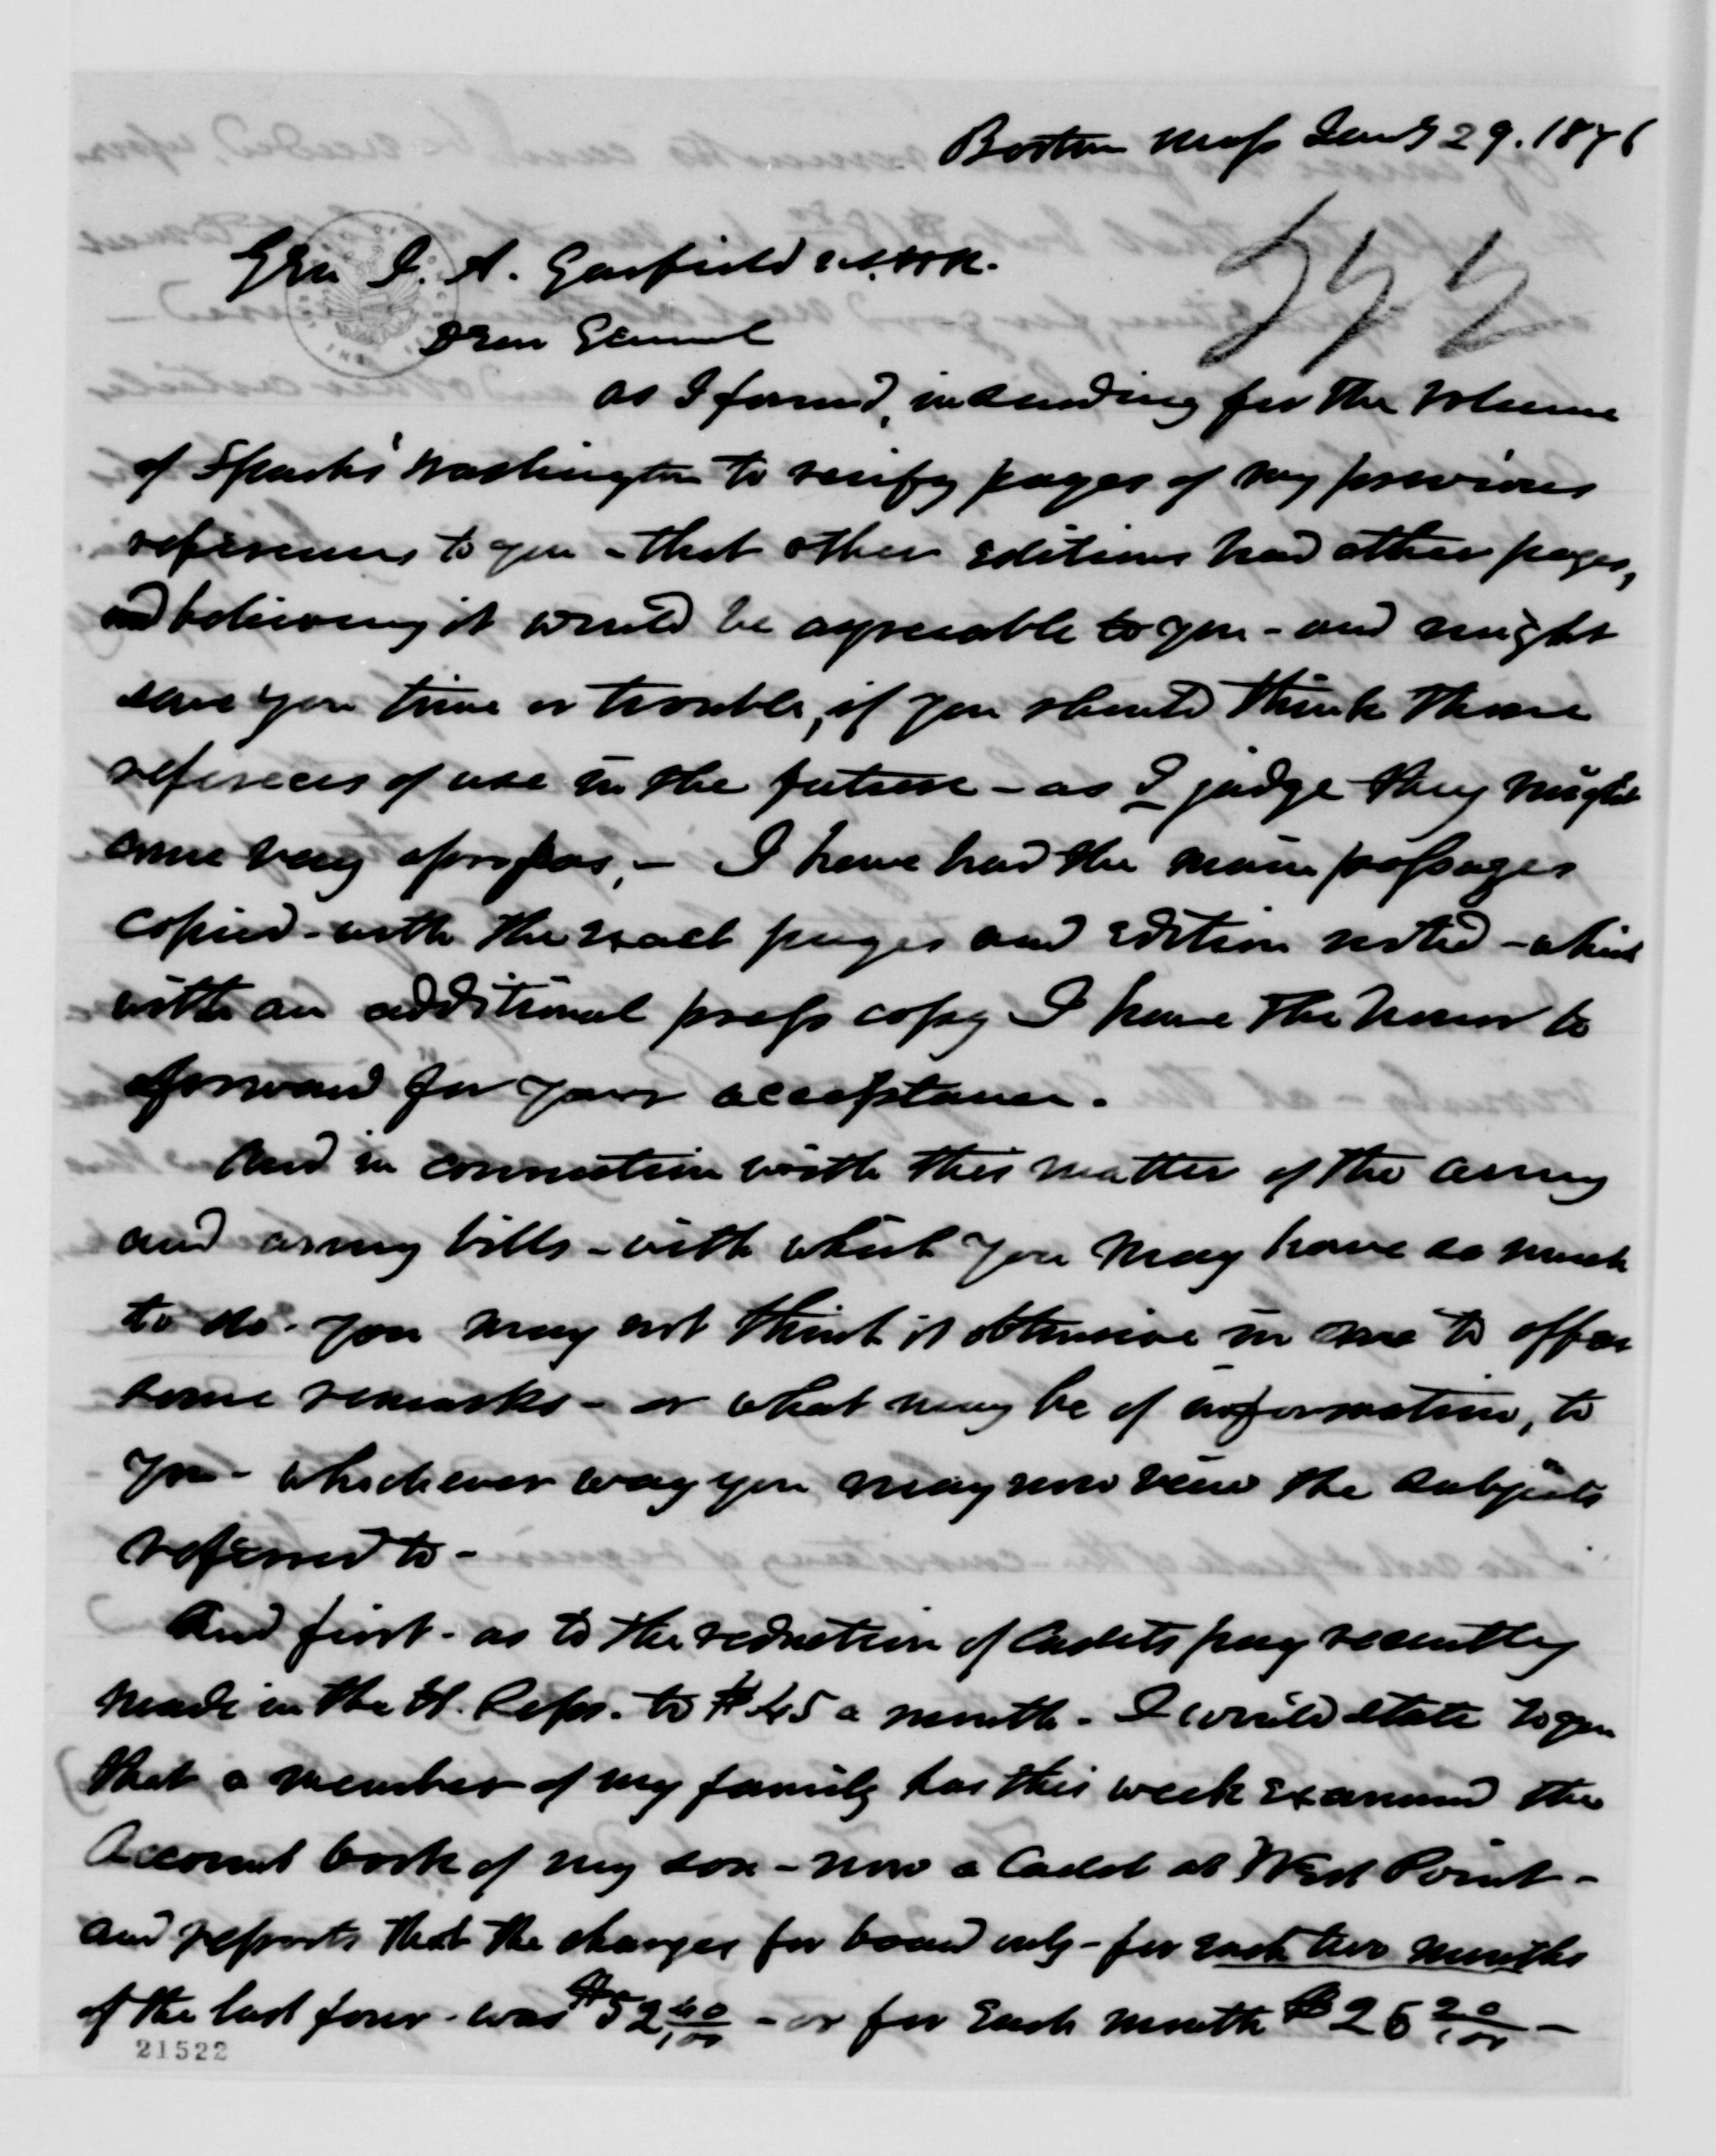 Boston Mass Jany 29. 1876
Gen J. A. Garfield M.H.R.
Dear General
as I found, in sending for the volume
of Sparks' Washington to verify pages of my previous
references to you - that other editions had other pages,
and believing it would be agreeable to you - and might
save you time or trouble, if you should think those
refereces of use in the future - as I judge they might
come very apropos, - I have had the main passages
copied - with the exact pages and edition noted - which
with an additional press copy I have the honor to
forward for your acceptance.
And in connection with this matter of the army
and army bills - with which you may have so much
to do - you may not think it obtrusive in me to offer
some remarks - or what may be of information, to
you - whichever way you may now view the subjects
referred to -
And first - as to the reduction of Cadets pay recently
made in the H. Reps. to $45 a month - I would state to you
that a member of my family has this week examined the
Account book of my son - now a Cadet at West Point -
and reports that the charges for board only - for each two months
of the last four - was $52 40/100 - or for each month $26 20/100 -
21522